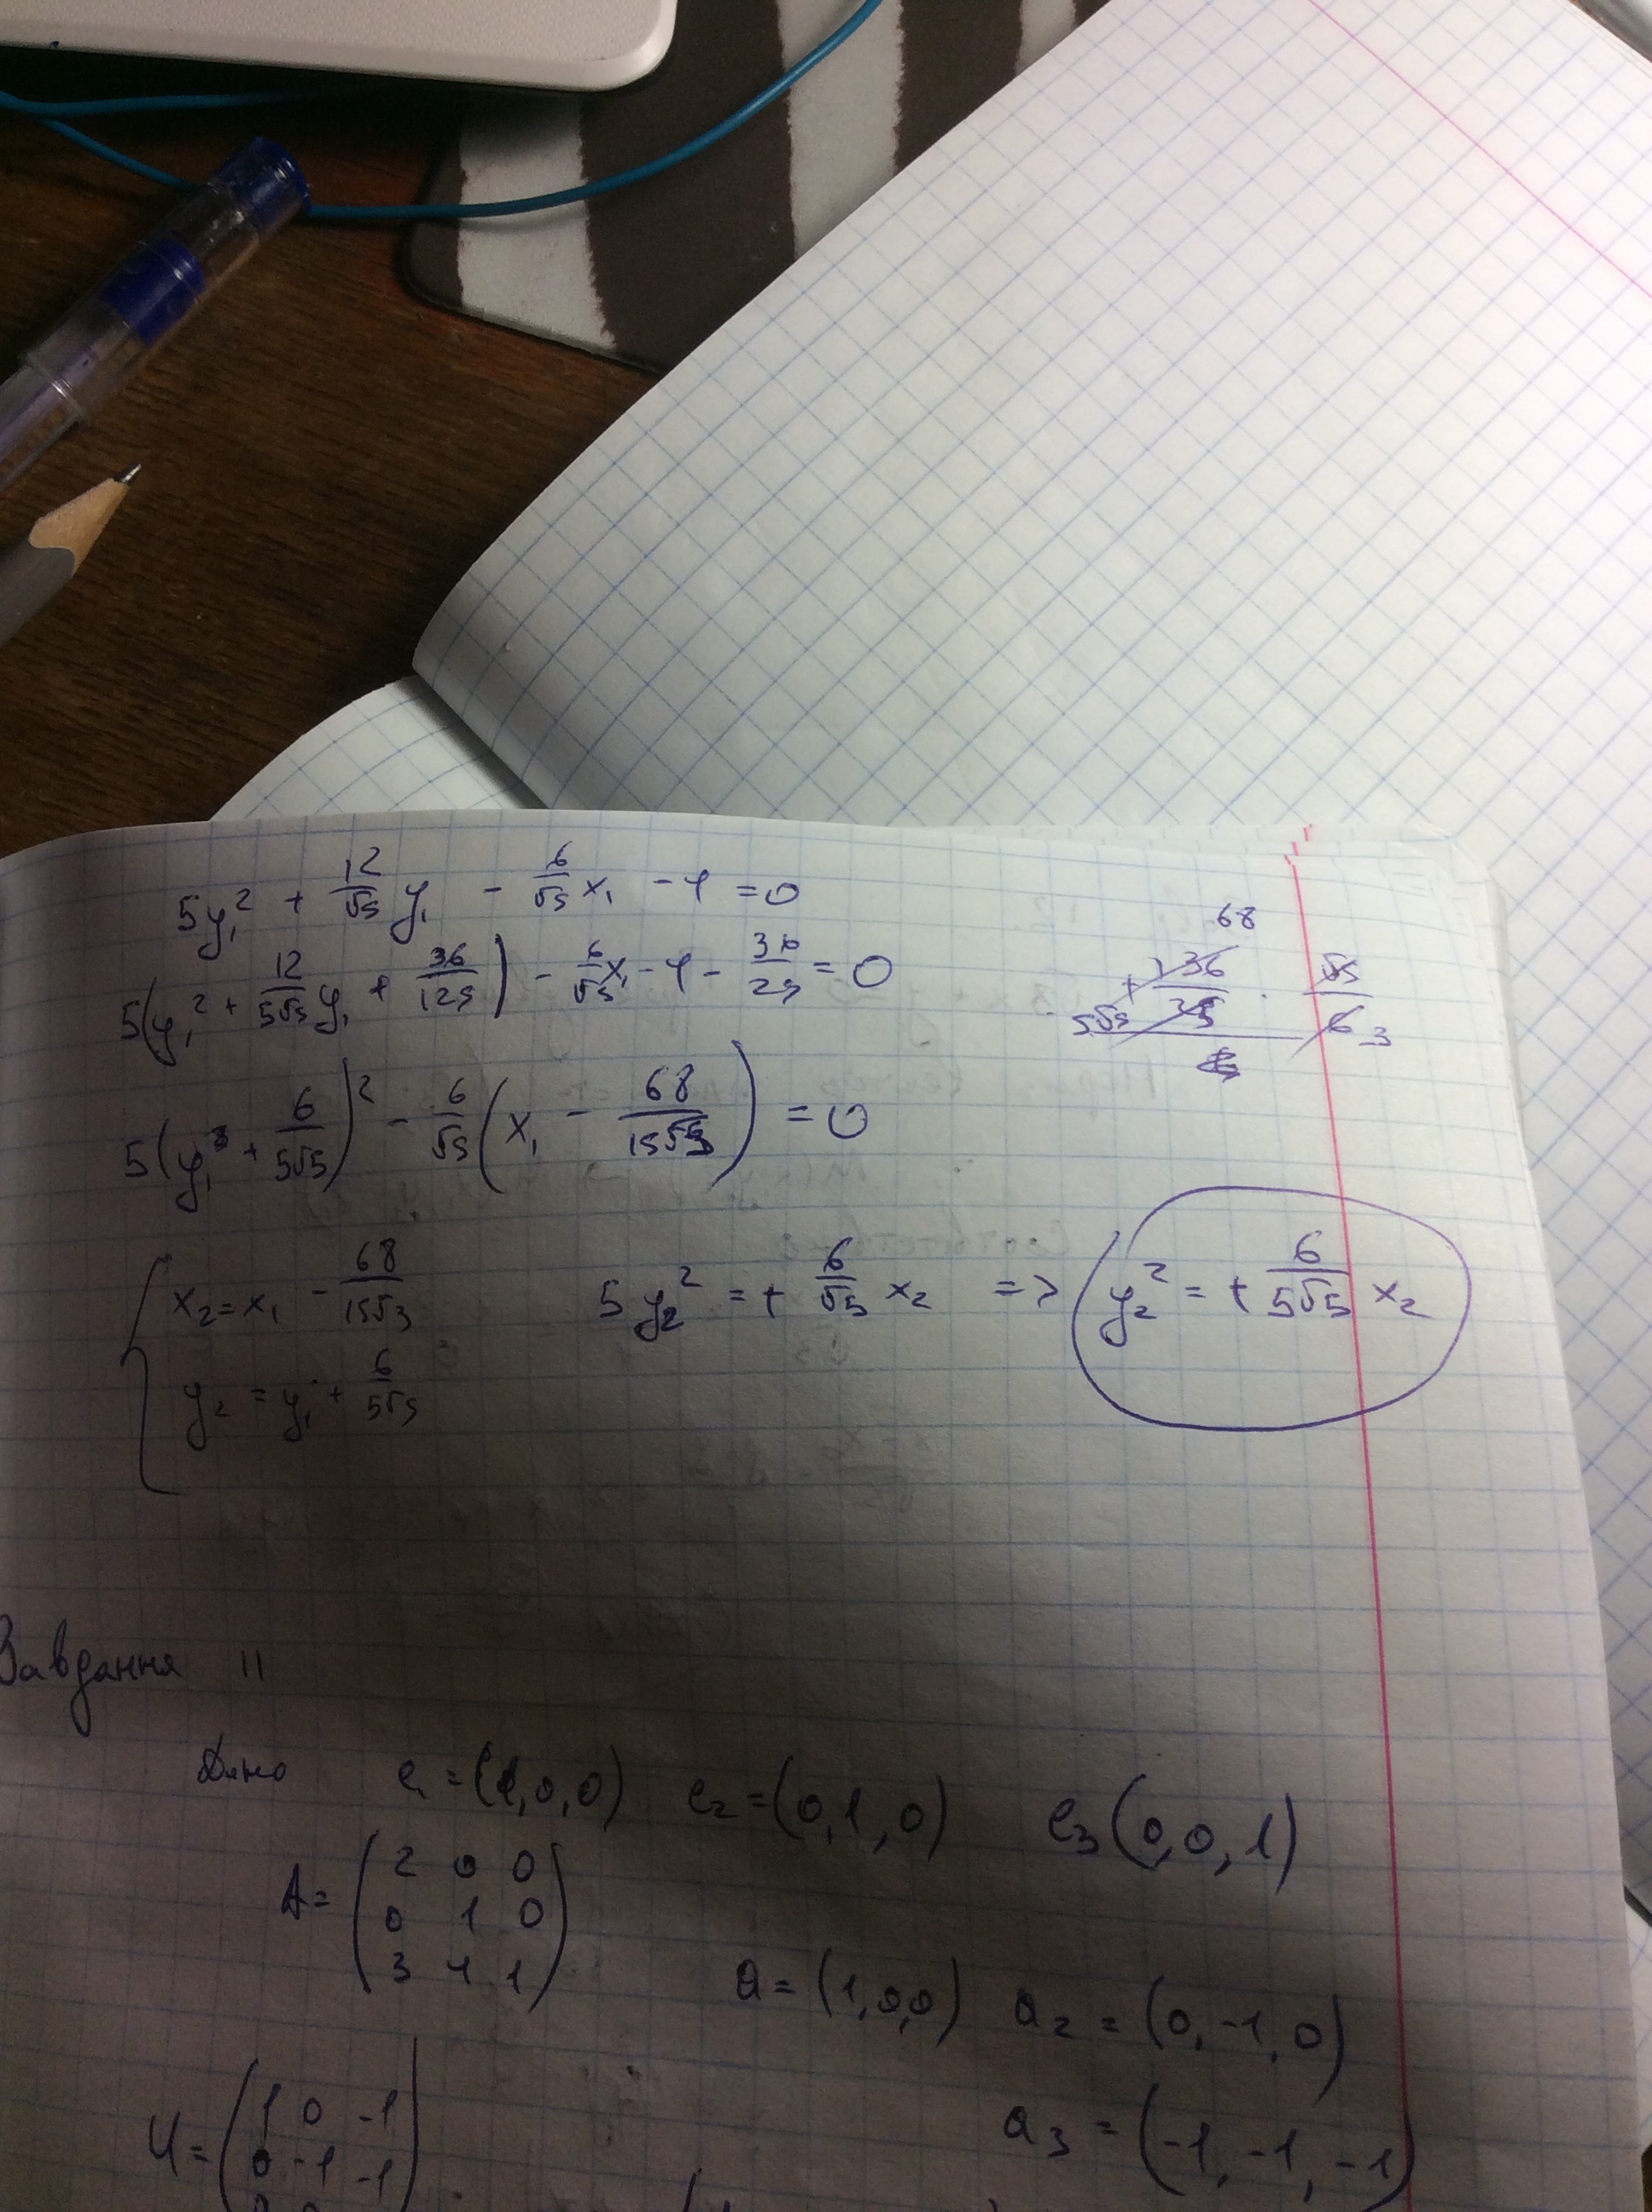 5y₁² + 12/√5 y₁ - 6/√5 x₁ - 4 = 0
5(y₁² + 12/5√5 y₁ + 36/125) - 6/√5 x₁ - 4 - 36/25 = 0
68
136/25 · √5/6 3
5√5
5(y₁ + 6/5√5)² - 6/√5 (x₁ - 68/15√5) = 0
{ x₂ = x₁ - 68/15√5
5y₂² = + 6/√5 x₂ => y₂² = + 6/5√5 x₂
y₂ = y₁ + 6/5√5
Завдання 11
Дано e₁ = (1,0,0) e₂ = (0,1,0) e₃ (0,0,1)
A = (2 0 0
0 1 0
3 4 1)
a = (1,0,0) a₂ = (0,-1,0)
a₃ = (-1,-1,-1)
U = (1 0 -1
0 -1 -1